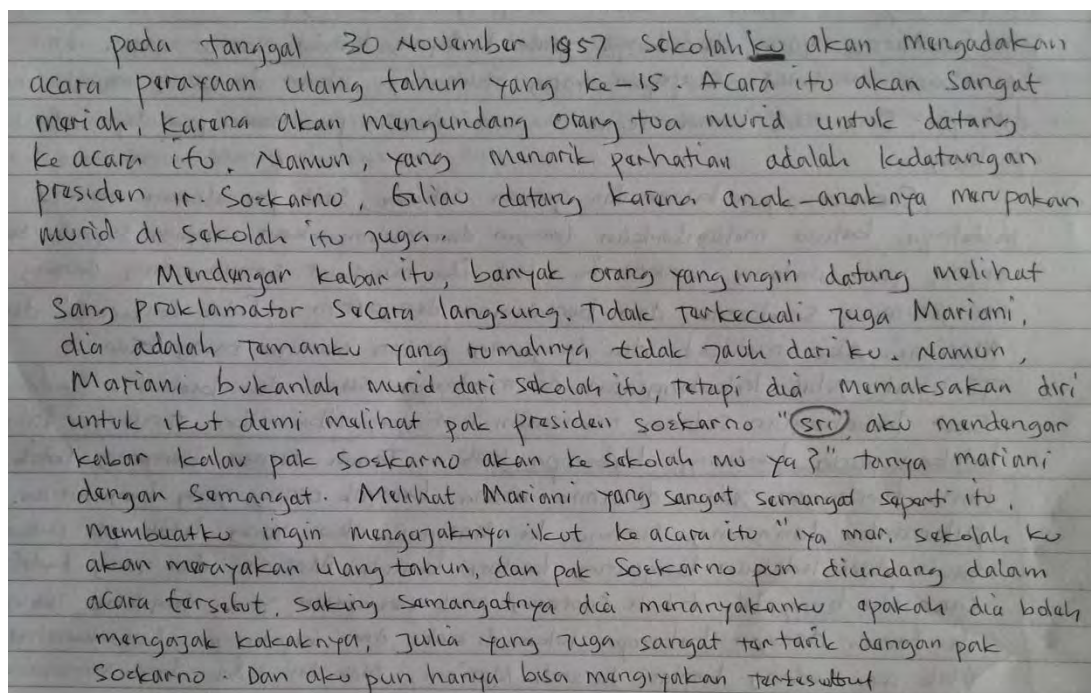 pada tanggal 30 November 1957 sekolahku akan mengadakan
acara perayaan ulang tahun yang ke-15. Acara itu akan sangat
meriah, karena akan mengundang orang tua murid untuk datang
ke acara itu. Namun, yang menarik perhatian adalah kedatangan
presiden ir. Soekarno, beliau datang karena anak-anaknya merupakan
murid di sekolah itu juga.
Mendengar kabar itu, banyak orang yang ingin datang melihat
Sang proklamator secara langsung. Tidak terkecuali juga Mariani,
dia adalah temanku yang rumahnya tidak jauh dariku. Namun,
Mariani bukanlah murid dari sekolah itu, tetapi dia memaksakan diri
untuk ikut demi melihat pak presiden soekarno "sri, aku mendengar
kabar kalau pak soekarno akan ke sekolah mu ya?" tanya mariani
dengan semangat. Melihat Mariani yang sangat semangat seperti itu,
membuatku ingin mengajaknya ikut ke acara itu "iya mar, sekolah ku
akan merayakan ulang tahun, dan pak Soekarno pun diundang dalam
acara tersebut, saking semangatnya dia menanyakanku apakah dia boleh
mengajak kakaknya, Julia yang juga sangat tertarik dengan pak
Soekarno. Dan aku pun hanya bisa mengiyakan